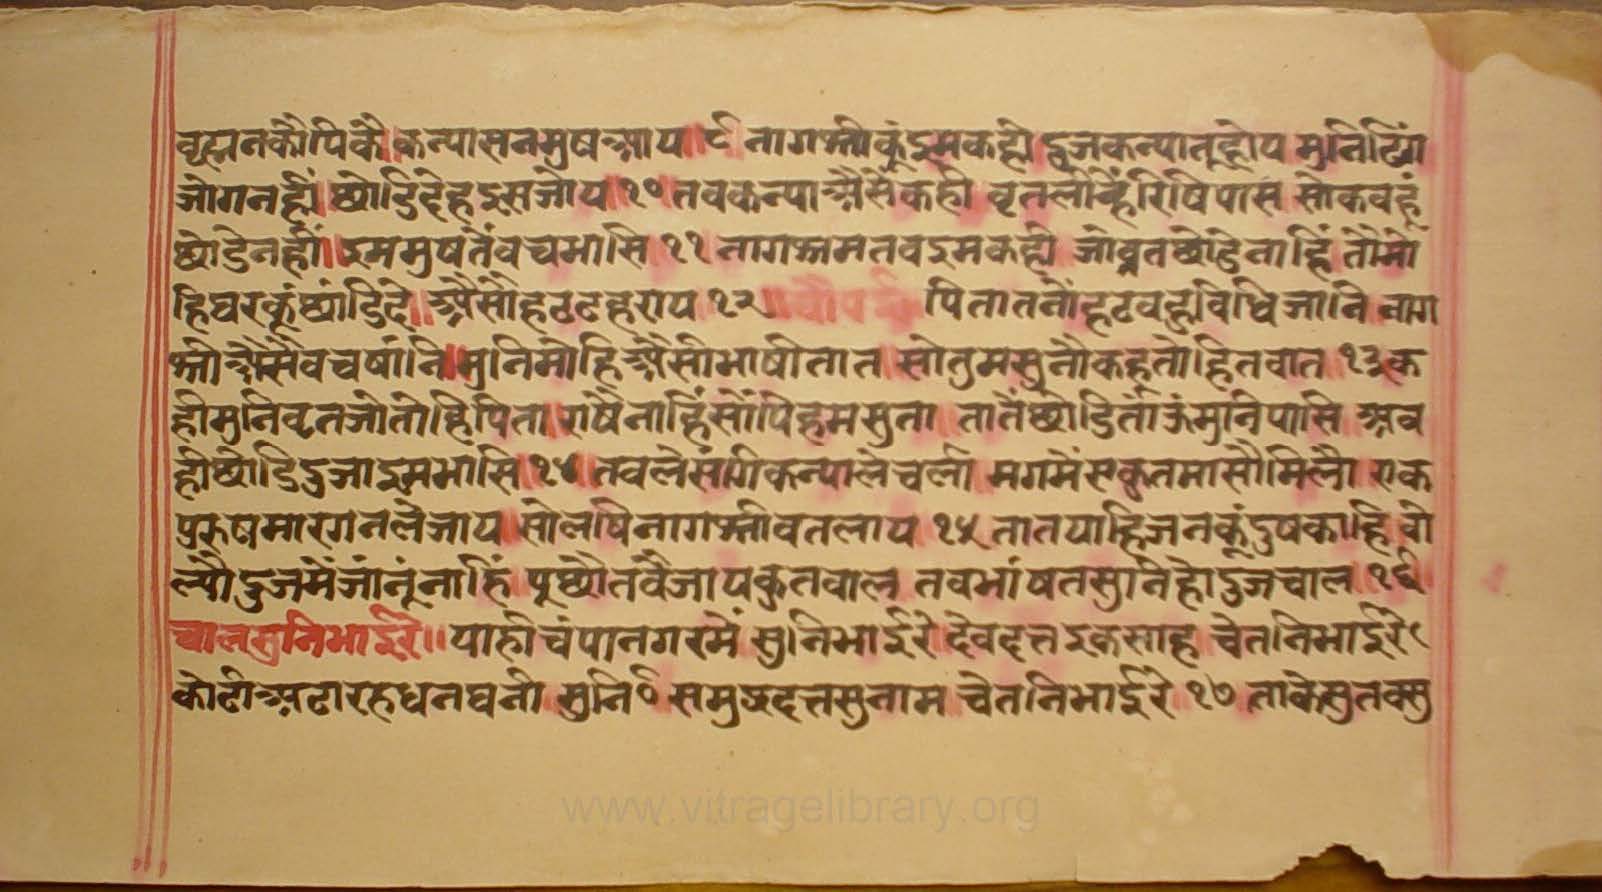 वृह्मनकौपिकै॥ कन्यासनमुषआय॥ ९ नागश्रीकूंइमकही द्वजकन्यातूहोय मुनिटिंग
जोगनहीं॥ छोडिदेहइसजोय॥ १० तवकन्याअैसेंकही वृतलीन्हेंरिषिपास सोकवहूं
छोडेनहीं॥ इममुषतैंवचभासि ११ नागश्रमतवइमकही जोव्रतछोडेनाहिं तौमो
हिघरकूंछांडिदे॥ अैसौहठठहराय १२॥ चौपई॥ पितातनौंहठवहुविधिजानि नाग
श्रीअैसैवचषांनि॥ मुनिमोहिअैसीभाषीतात सोतुमसुनौकहतोहितवात १३ क
हीमुनिवृतजोतोहिपिता॥ राषैनाहिंसौंपिहमसुता तातैंछोडितांऊंमुनिपासि अव
हीछोडिदुजाइमभासि॥ १४ तवलेसंगीकन्यालेचली मगमेंसकृतमासौमिलौ एक
पुरुषमारगनलेजाय॥ सोलषिनागश्रीवतलाय १५ तातयाहिजनकूंदुषकाहि वो
ल्यौदुजमैंजांनूंनाहिं पूछौतवैजायकुतवाल तवभांषतसुनिहोदुजचाल १६
चालसुनिभाईरे॥ याहीचंपानगरमें सुनिभाईरे देवदत्तइकसाह चेतनिभाईरे९
कोटीअठारहधनघनी सुनि० समुद्रदत्तसुनाम चेतनिभाईरे १७ ताकेसुतवसु
www.vitragelibrary.org